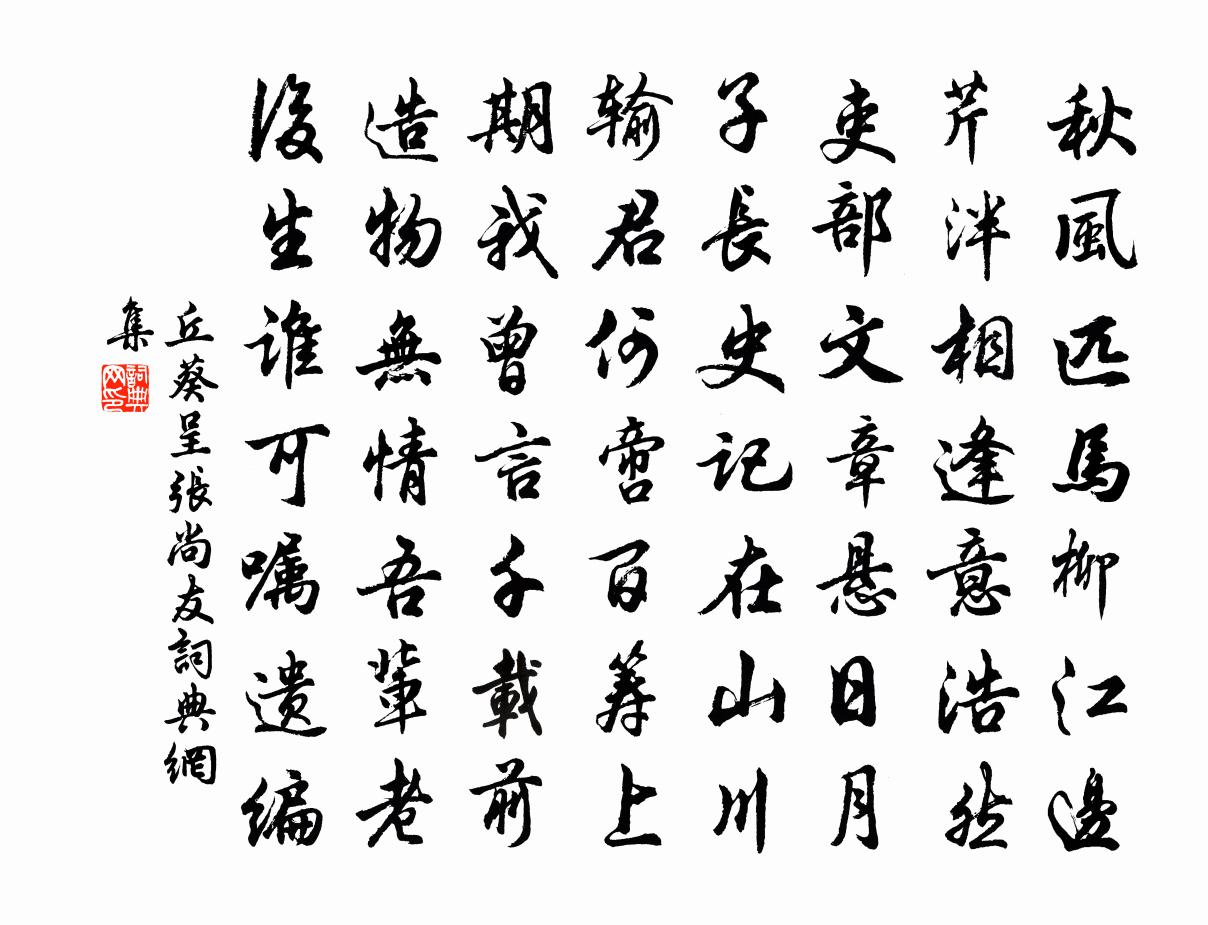 秋風匹馬柳江邊
芹泮相逢意浩然
吏部文章悬日月
子長史記在山川
输君何啻百筹上
期我曾言千載前
造物無情吾輩老
後生誰可嘱遗编
丘葵呈張尚友詞典網
集
詞典网印